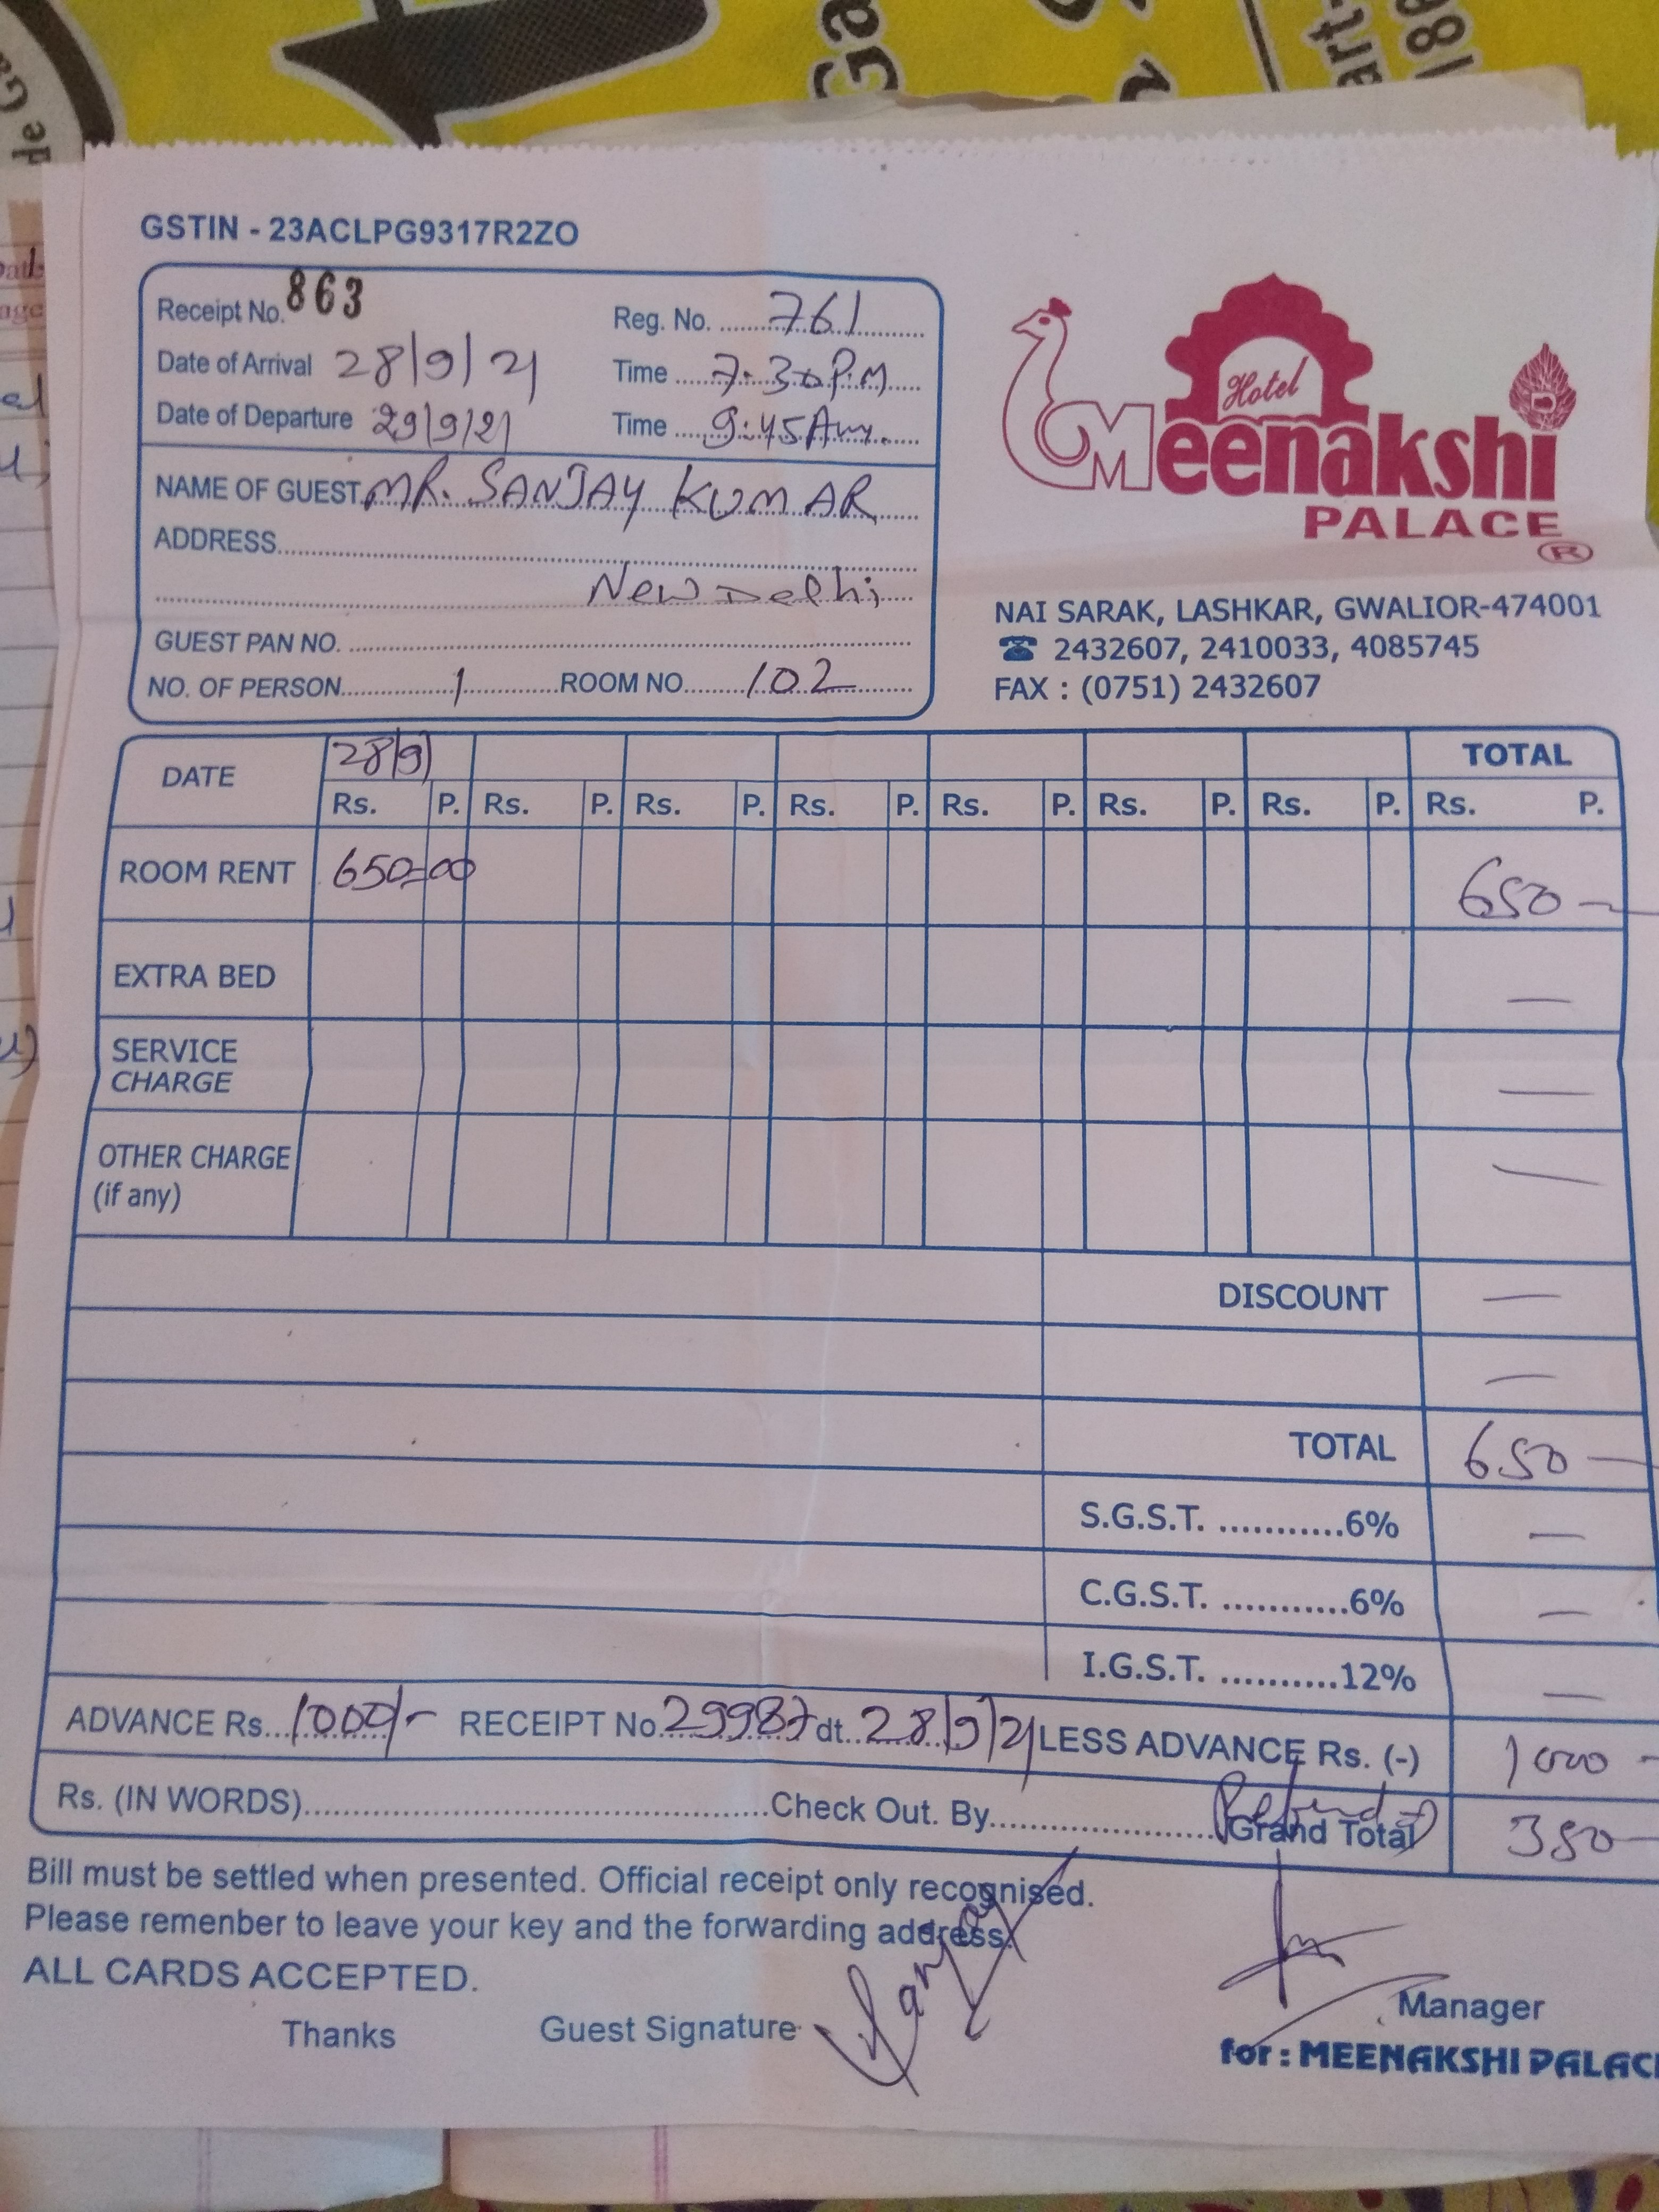 GSTIN - 23ACLPG9317R2ZO
Receipt No. 863 Reg. No. 761
Date of Arrival 28/9/21 Time 7.30 P.M
Date of Departure 29/9/21 Time 9:45 Am.
NAME OF GUEST MR. SANJAY KUMAR
ADDRESS
New Delhi
GUEST PAN NO.
NO. OF PERSON 1 ROOM NO. 102
Hotel
Meenakshi
PALACE
®
NAI SARAK, LASHKAR, GWALIOR-474001
☎ 2432607, 2410033, 4085745
FAX : (0751) 2432607
DATE 28/9 TOTAL
Rs. P. Rs. P. Rs. P. Rs. P. Rs. P. Rs. P. Rs. P. Rs. P.
ROOM RENT 650=00 650 —
EXTRA BED —
SERVICE CHARGE —
OTHER CHARGE (if any) —
DISCOUNT —
—
TOTAL 650 —
S.G.S.T. ...........6% —
C.G.S.T. ...........6% —
I.G.S.T. ..........12% —
ADVANCE Rs. 1000/- RECEIPT No. 29987 dt. 28/9/21 LESS ADVANCE Rs. (-) 1000 -
Rs. (IN WORDS) Check Out. By Refund Grand Total 350 —
Bill must be settled when presented. Official receipt only recognised.
Please remenber to leave your key and the forwarding address.
ALL CARDS ACCEPTED.
Thanks Guest Signature Sanjay Manager
for : MEENAKSHI PALACE